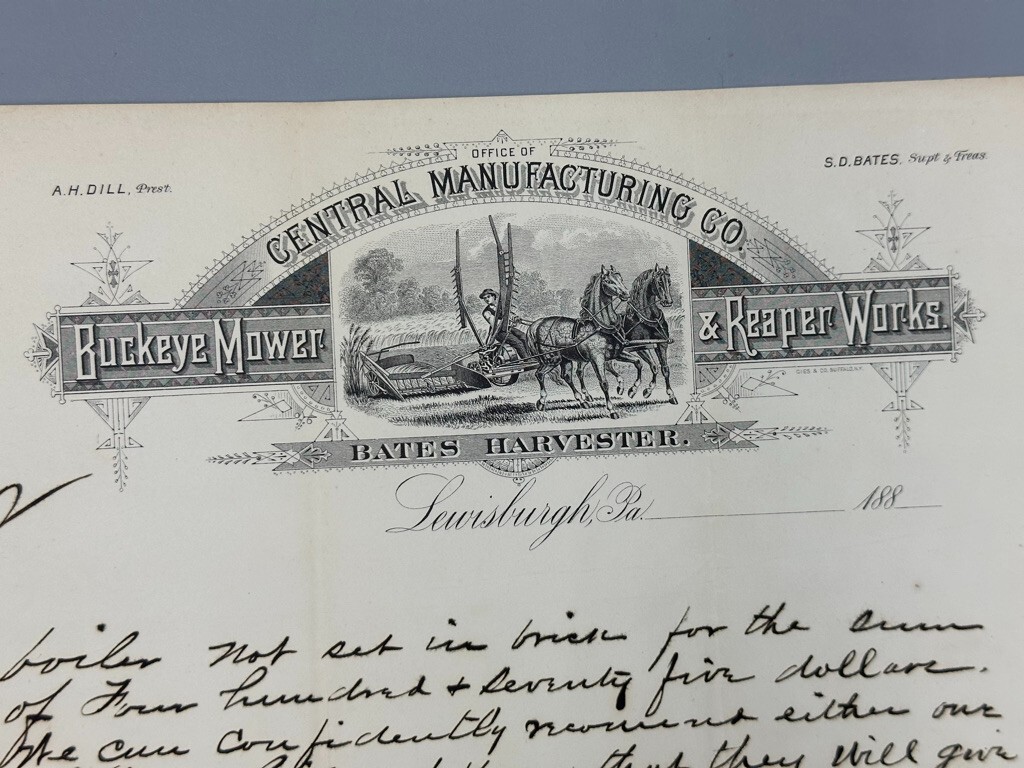 OFFICE OF
CENTRAL MANUFACTURING CO.
A.H. DILL, Prest.
S.D. BATES. Supt & Treas.
Buckeye Mower & Reaper Works.
BATES HARVESTER.
Lewisburgh, Pa. 188
boiler not set in brick for the sum
of Four hundred & Seventy five dollars.
We can confidently recomend either our
that they will give